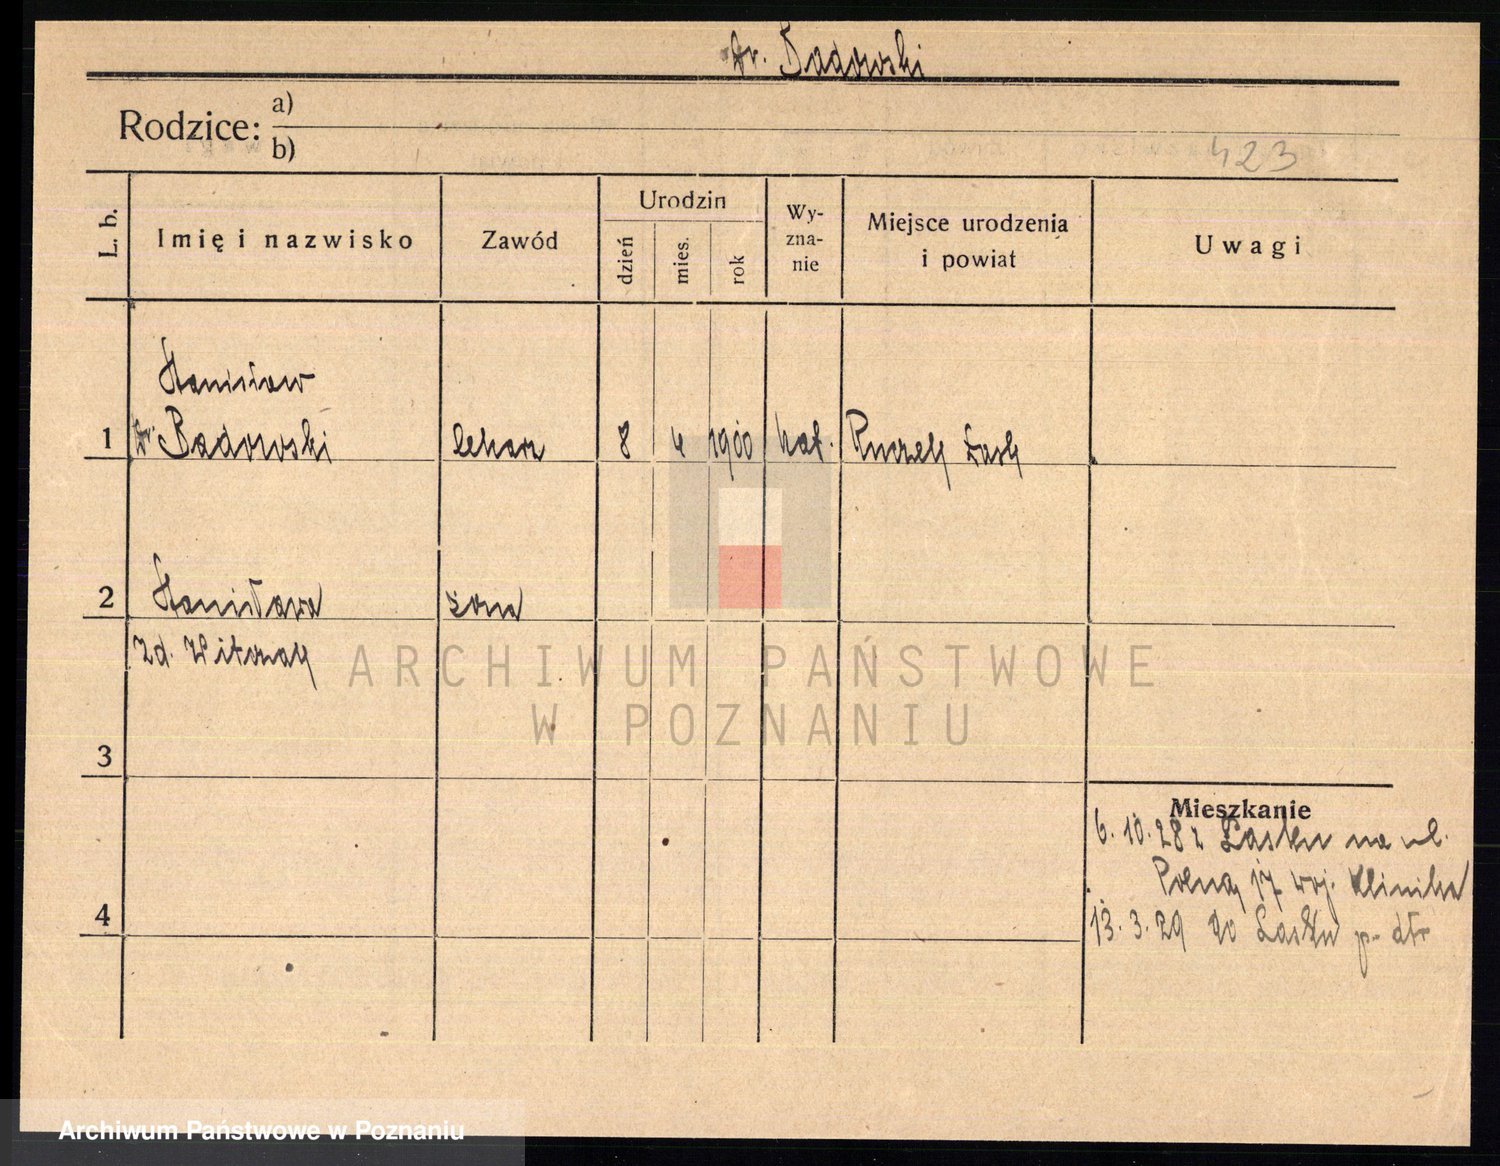 Dr. Badowski
Rodzice: a)
b)
423
L. b.
Imię i nazwisko
Zawód
Urodzin
dzień
mies.
rok
Wy-
zna-
nie
Miejsce urodzenia
i powiat
Uwagi
Stanisław
1 Dr. Badowski lekarz 8 4 1900 kat. Łask
2 Stanisława żona
zd. Witczak
3
4
Mieszkanie
6.10.28 z Łasku na ul.
Polną 17 woj. Klinika
13.3.29 do Łasku
ARCHIWUM PAŃSTWOWE
W POZNANIU
Archiwum Państwowe w Poznaniu